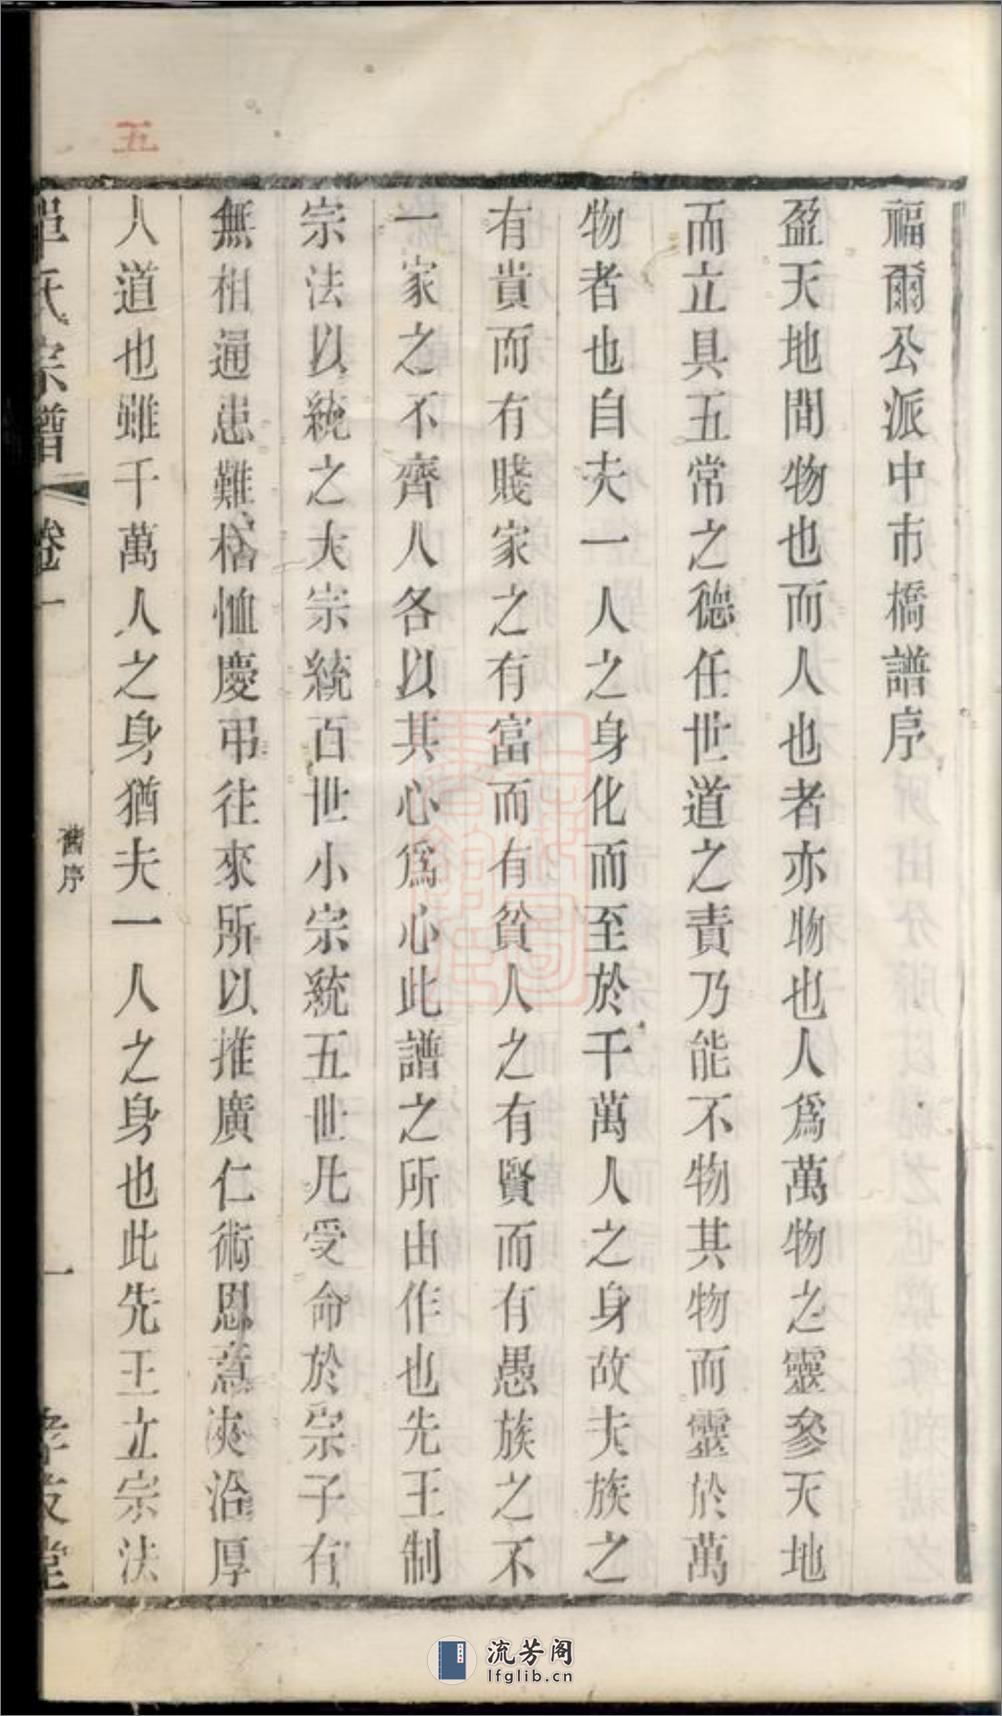 福爾公派中市橋譜序
盈天地間物也而人也者亦物也人爲萬物之靈參天地
而立具五常之德任世道之責乃能不物其物而靈於萬
物者也自夫一人之身化而至於千萬人之身故夫族之
有貴而有賤家之有富而有貧人之有賢而有愚族之不
一家之不齊人各以其心爲心此譜之所由作也先王制
宗法以統之大宗統百世小宗統五世凡受命於宗子有
無相通患難相恤慶弔往來所以推廣仁術恩意浹洽厚
人道也雖千萬人之身猶夫一人之身也此先王立宗法
氏宗譜
卷一
舊序
一
堂
五
流芳阁
lfglib.cn